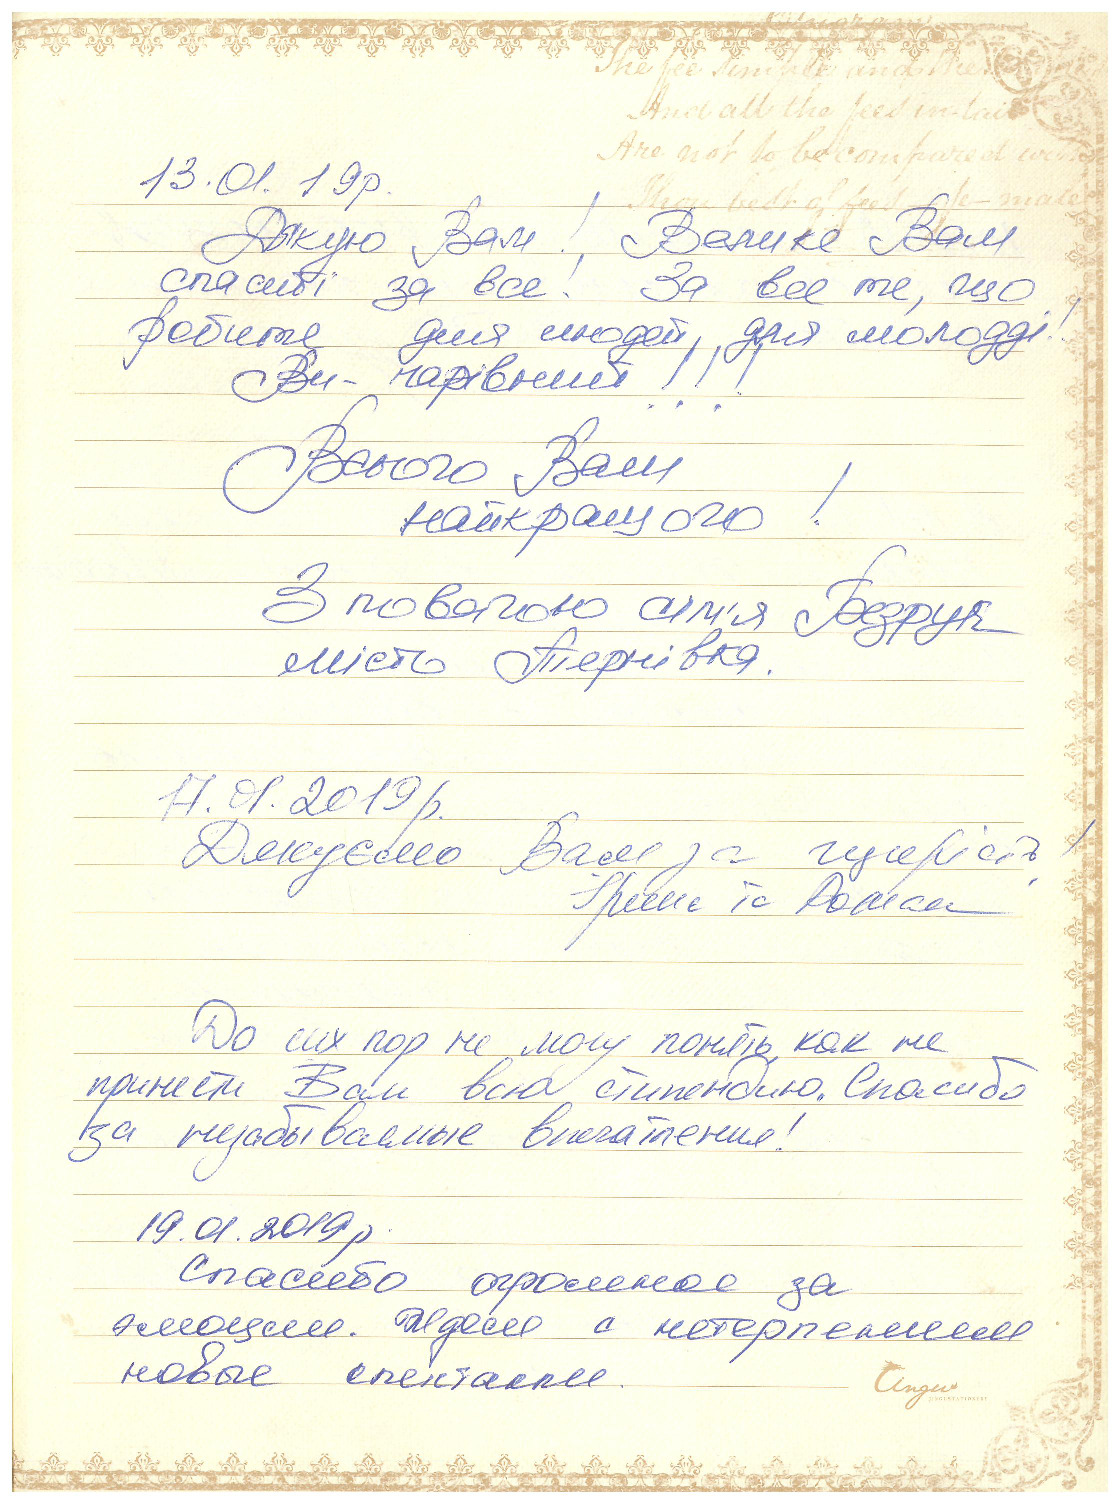 The fee simple and the
And all the feed in tail
Are not to be compared
13.01.19р.
Дякую Вам! Велике Вам
спасибі за все! За все те, що
робите для людей, для молодді!
Ви - чарівний!!!
Всього Вам
найкращого!
З повагою сім'я
місто Тернівка.
17.01.2019р.
Дякуємо Вам за щирість!
Ірина та Роман
До сих пор не могу понять, как не
принести Вам всю стипендию. Спасибо
за незабываемые впечатления!
19.01.2019р.
Спасибо огромное за
эмоции. Ждем с нетерпением
новые спектакли.